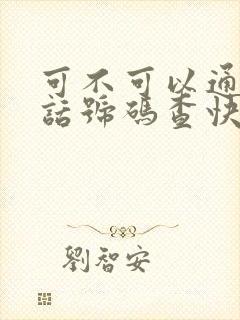 可不可以通
話號碼查快
劉智安